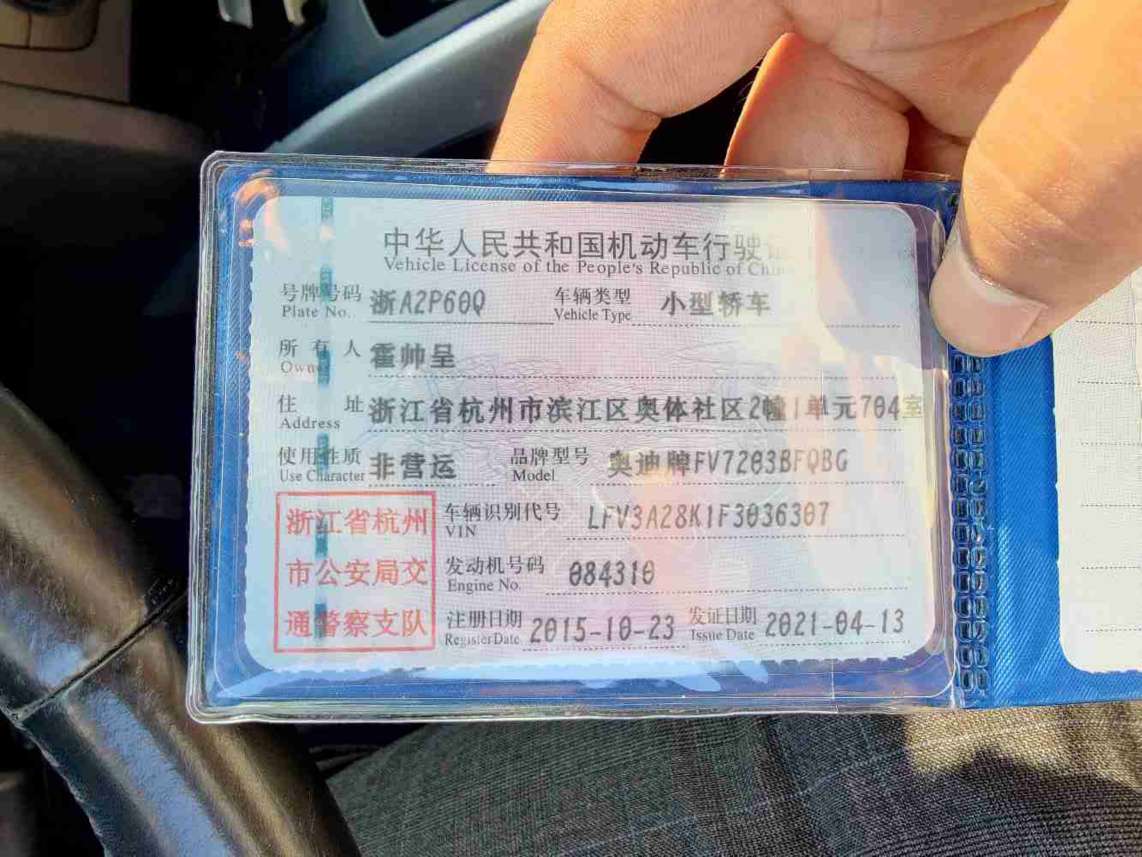 中华人民共和国机动车行驶证
Vehicle License of the People's Republic of China
号牌号码 浙A2P60Q 车辆类型 小型轿车
Plate No. Vehicle Type
所有人 霍帅呈
Owner
住址 浙江省杭州市滨江区奥体社区2幢1单元704室
Address
使用性质 非营运 品牌型号 奥迪牌FV7203BFQBG
Use Character Model
浙江省杭州
市公安局交
通警察支队
车辆识别代号 LFV3A28K1F3036307
VIN
发动机号码 084310
Engine No.
注册日期 2015-10-23 发证日期 2021-04-13
Register Date Issue Date